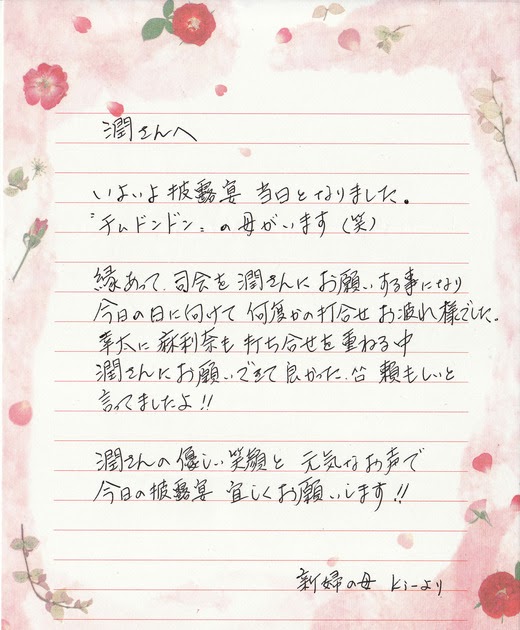 潤さんへ
いよいよ披露宴 当日となりました。
"チムドンドン〟の母がいます(笑)
縁あって、司会を潤さんにお願いする事になり
今日の日に向けて 何度かの打合せ お疲れ様でした。
幸太に麻利奈も打ち合せを重ねる中
潤さんにお願いできて良かった 頼もしいと
言ってましたよ!!
潤さんの優しい笑顔と 元気なお声で
今日の披露宴 宜しくお願いします!!
新婦の母 Kiーより